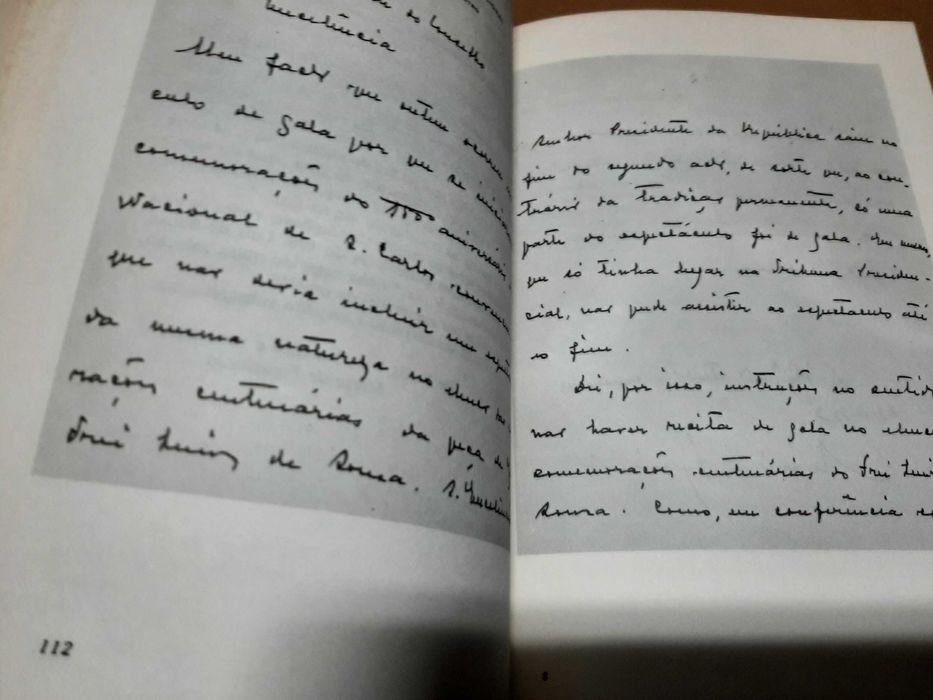 do Conselho
Excelência
Meu facto que ontem
culo de gala por que se
comemorações do 150 aniversário
Nacional de S. Carlos
que não devia incluir um
da mesma natureza no
rações centenárias da peça de
Frei Luiz de Sousa. S. Excelência
112
Senhor Presidente da República saiu no
fim do segundo acto, de sorte que, ao con-
trário da tradição permanente, só uma
parte do espectáculo foi de gala. Eu mesmo,
que só tinha lugar na Tribuna Presiden-
cial, não pude assistir ao espectáculo até
ao fim.
Dei, por isso, instruções no sentido
não haver récita de gala no
comemorações centenárias do Frei Luiz
Sousa. Como, em conferência
8